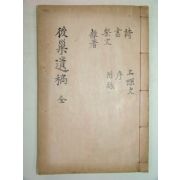 上樑文
詩
書 序
祭文 附錄
雜著
後巢遺稿 全